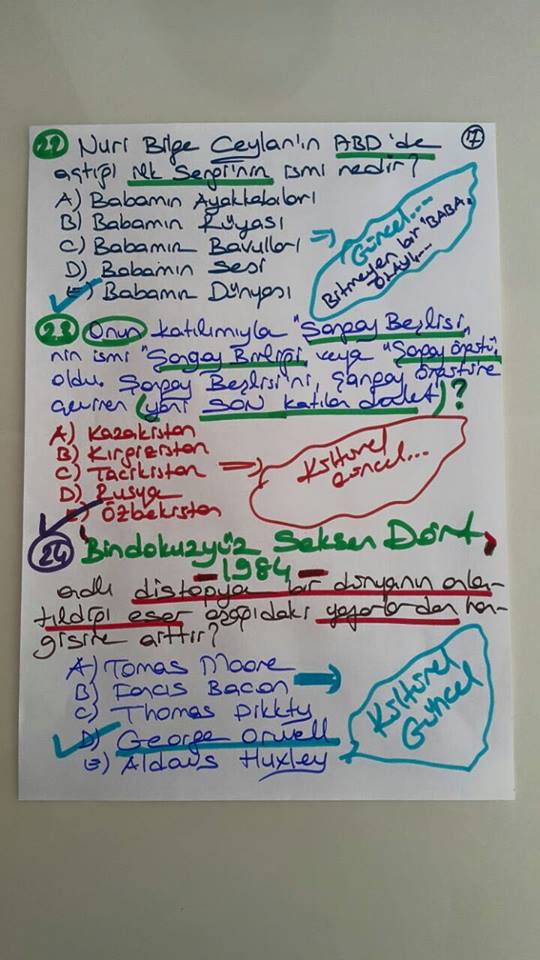 22 Nuri Bilge Ceylan'ın ABD'de
17
açtığı ilk Sergi'nin ismi nedir?
A) Babamın Ayakkabıları
B) Babamın Rüyası
C) Babamın Bavulları
D) Babamın Sesi
E) Babamın Dünyası
Güncel...
Bitmeyen bir "BABA"
23 Onun katılımıyla "Şangay Beşlisi"
nin ismi "Şangay Birliği" veya "Şangay Örgütü"
oldu. Şangay Beşlisi'ni, Şangay Örgütüne
çeviren (yani SON katılan devlet)?
A) Kazakistan
B) Kırgızistan
C) Tacikistan
D) Rusya
E) Özbekistan
Kültürel
Güncel...
24 Bindokuzyüz Seksen Dört
1984
adlı distopya bir dünyanın anla-
tıldığı eser aşağıdaki yazarlardan han-
gisine aittir?
A) Tomas Moore
B) Francis Bacon
C) Thomas Pikkty
D) George Orwell
E) Aldous Huxley
Kültürel
Güncel